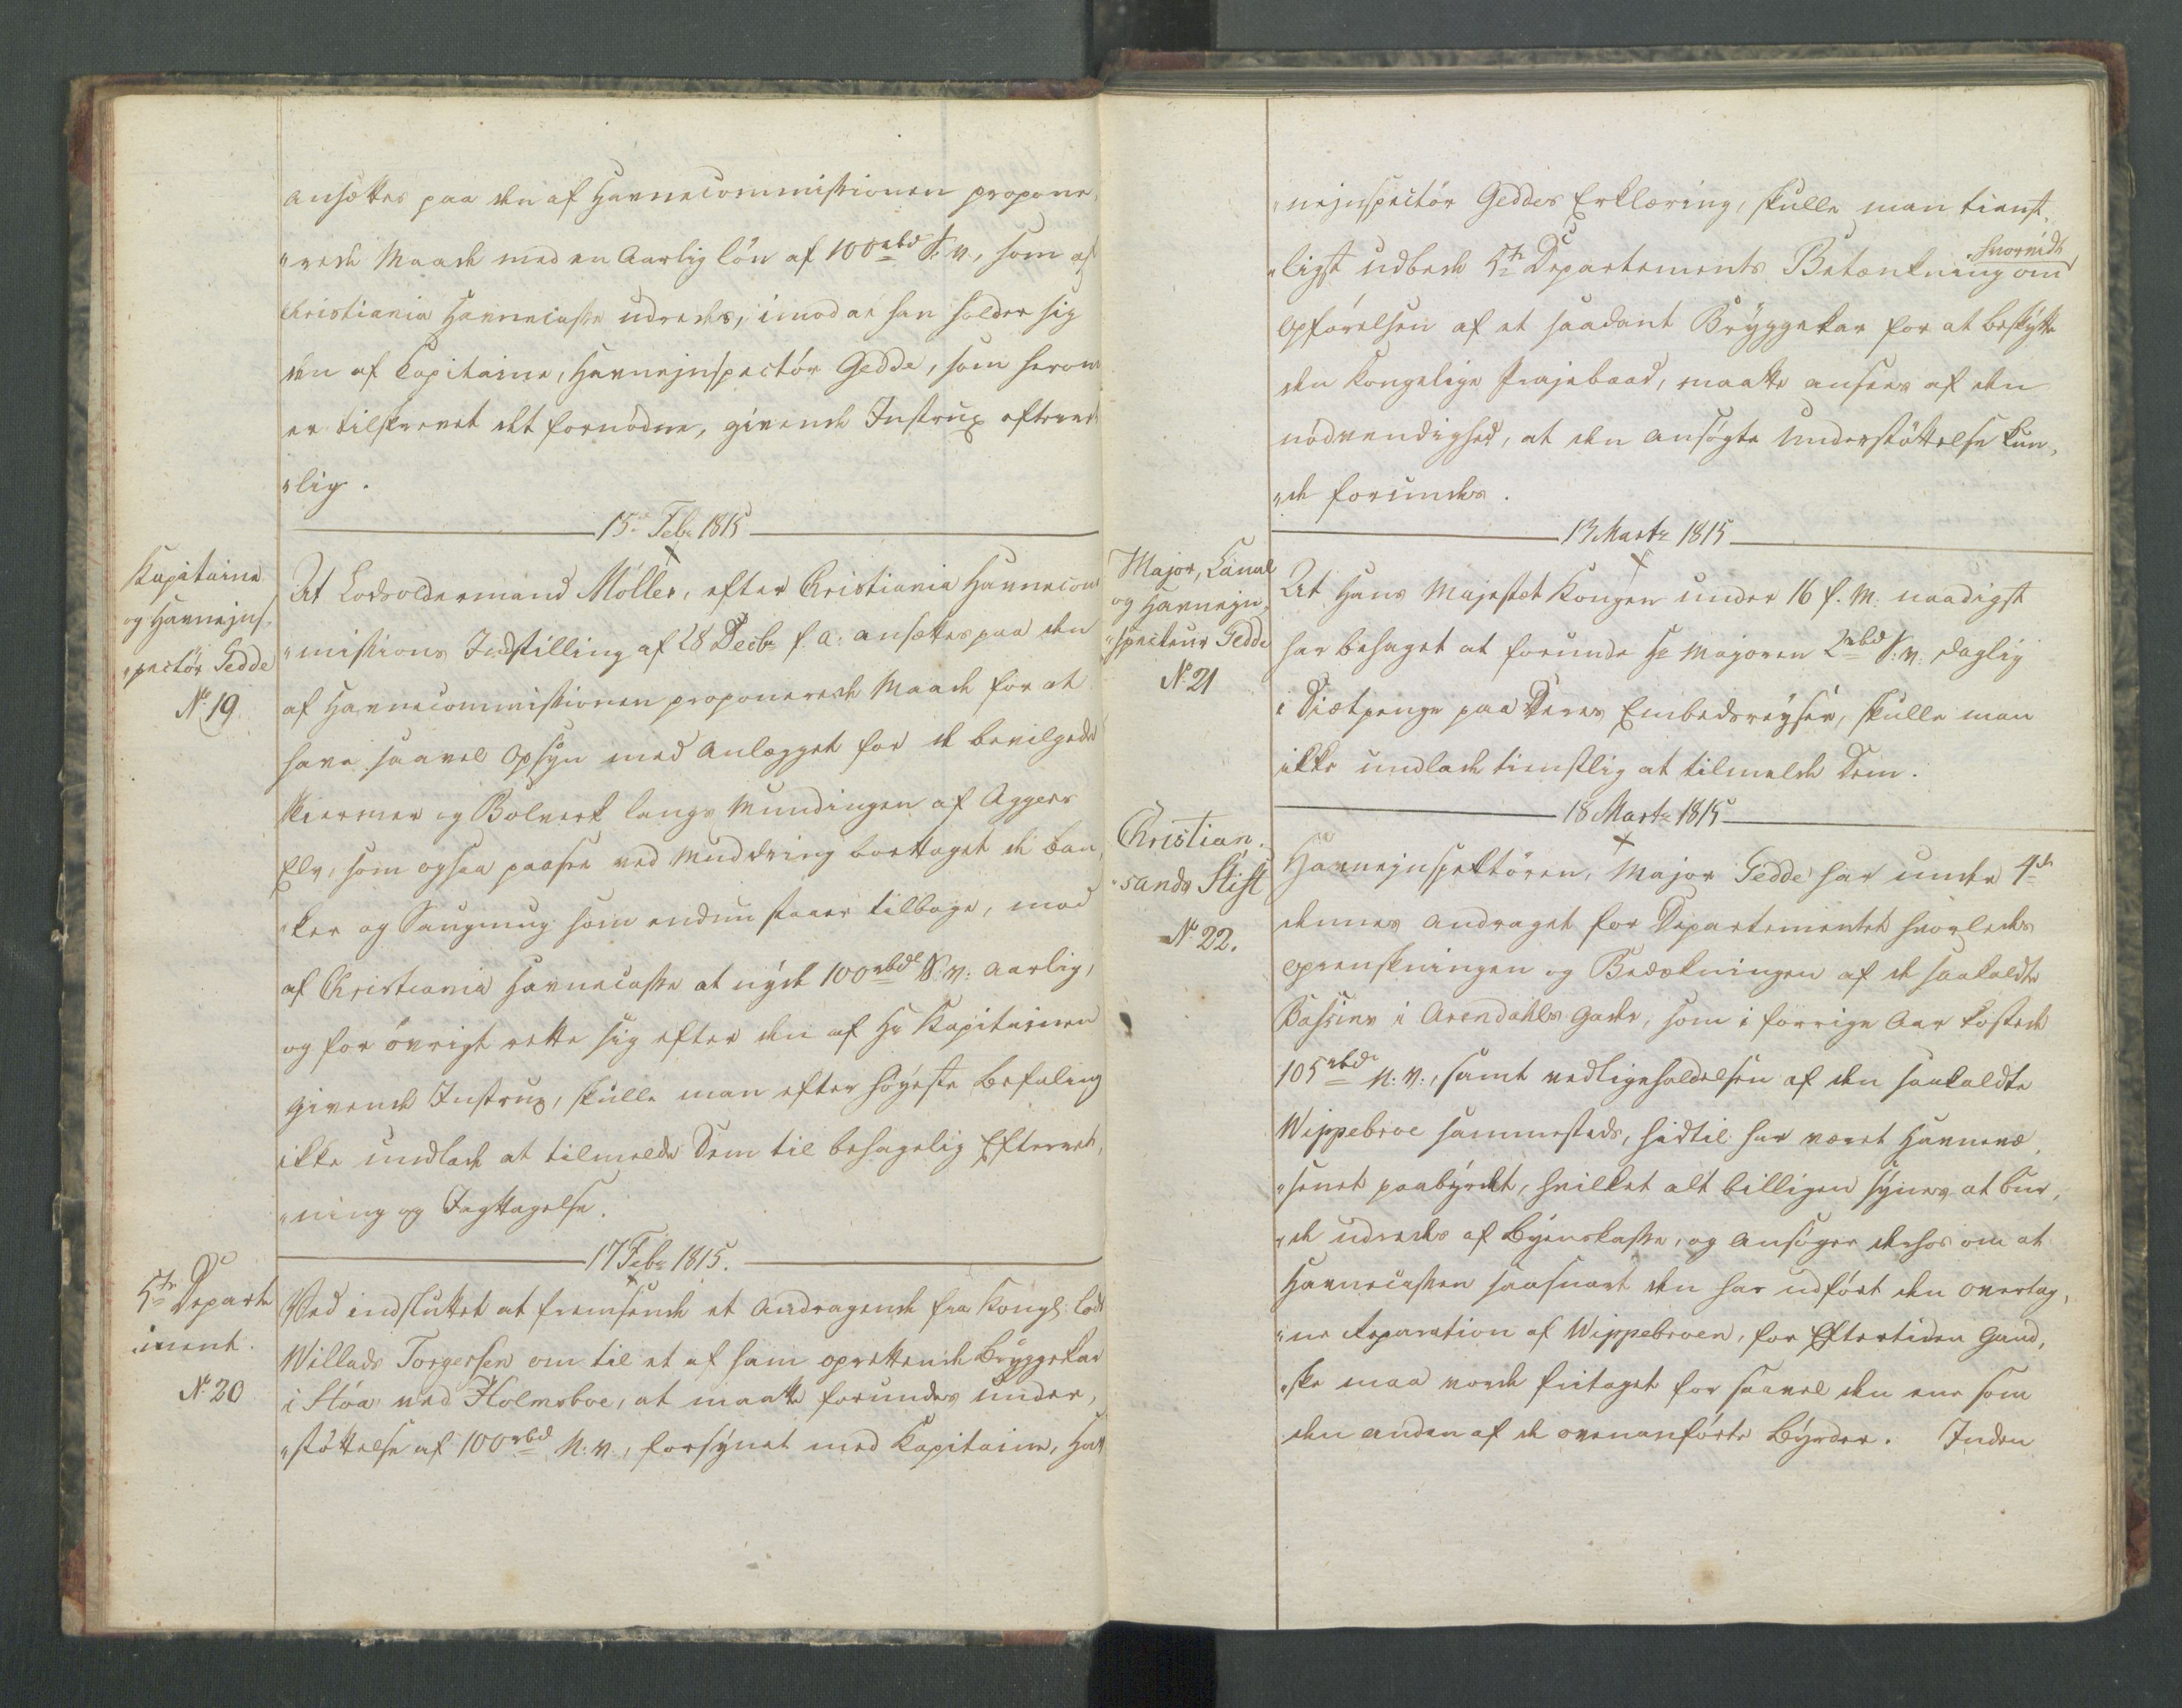 ansættes paa den af Havnecommissionen propone„
„rede Maade med en Aarlig Løn af 100 rbd S. V., som af
Christiania Havnecasse udredes, imod at han holder sig
den af Capitaine, Havneinspectør Gedde, som herom
er tilskrevet det fornødne, givende Instrux efterret„
„lig.
15de Febr 1815
Kapitaine
og Havneins„
„pectør Gedde
No 19.
At Lodsoldermand Møller, efter Christiania Havnecom„
„missions Indstilling af 28 Decbr f. A. ansættes paa den
af Havnecommissionen proponerede Maade for at
have saavel Opsyn med Anlægget for de bevilgede
Skiermer og Bolverk langs Mundingen af Aggers
Elv, som ogsaa paasee ved Muddring borttaget de Ban„
„ker og Saugmug som endnu staaer tilbage, mod
af Christiania Havnecasse at nyde 100 rbdl S. V. aarlig,
og for øvrigt rette sig efter den af Hr Kapitainen
givende Instrux, skulle man efter høyeste Befaling
ikke undlade at tilmelde Dem til behagelig Efterret„
„ning og Iagttagelse.
17 Febr 1815.
5te Departe
„ment.
No 20
Ved indsluttet at fremsende et Andragende fra Kongl. Lods
Willads Torgersen om til et af ham oprettende Bryggekar
i Støa ved Holmsboe, at maatte forundes under„
„støttelse af 100 rbd N. V., forsynet med Kapitaine, Hav„
„neinspectør Geddes Erklæring, skulle man tienst„
„ligst udbede 5te Departements Betænkning om hvorvidt
Opførelsen af et saadant Bryggekar for at beskytte
den Kongelige Prajebaad, maatte ansees af den
nødvendighed, at den ansøgte Understøttelse kun„
„de forundes.
13 Marts 1815
Major, Canal
og Havnein„
„specteur Gedde
No 21
At Hans Majestet Kongen under 16 f. M. naadigst
har behaget at forunde Hr Majoren 2 rbd S. V. daglig
i Diætpenge paa Deres Embedsreyser, skulle man
ikke undlade tienstlig at tilmelde Dem.
18 Marts 1815
Christian„
„sands Stift
No 22.
Havneinspektøren, Major Gedde har under 4de
dennes andraget for Departementet hvorledes
oprenskningen og Bedækningen af de saakaldte
Bassiner i Arendahls Gader, som i forrige Aar kostede
105 rbd N. V., samt vedligeholdelsen af den saakaldte
Wippebroe sammesteds, hidtil har været Havnevæ„
„senet paabyrdet, hvilket alt billigen synes at bur„
„de udredes af Byens kasse, og ansøger derhos om at
Havnecassen saasnart den har udført den overtag„
„ne Reparation af Wippebroen, for Eftertiden gand„
„ske maa vorde fritaget for saavel den ene som
den anden af de ovenanførte Byrder. Inden